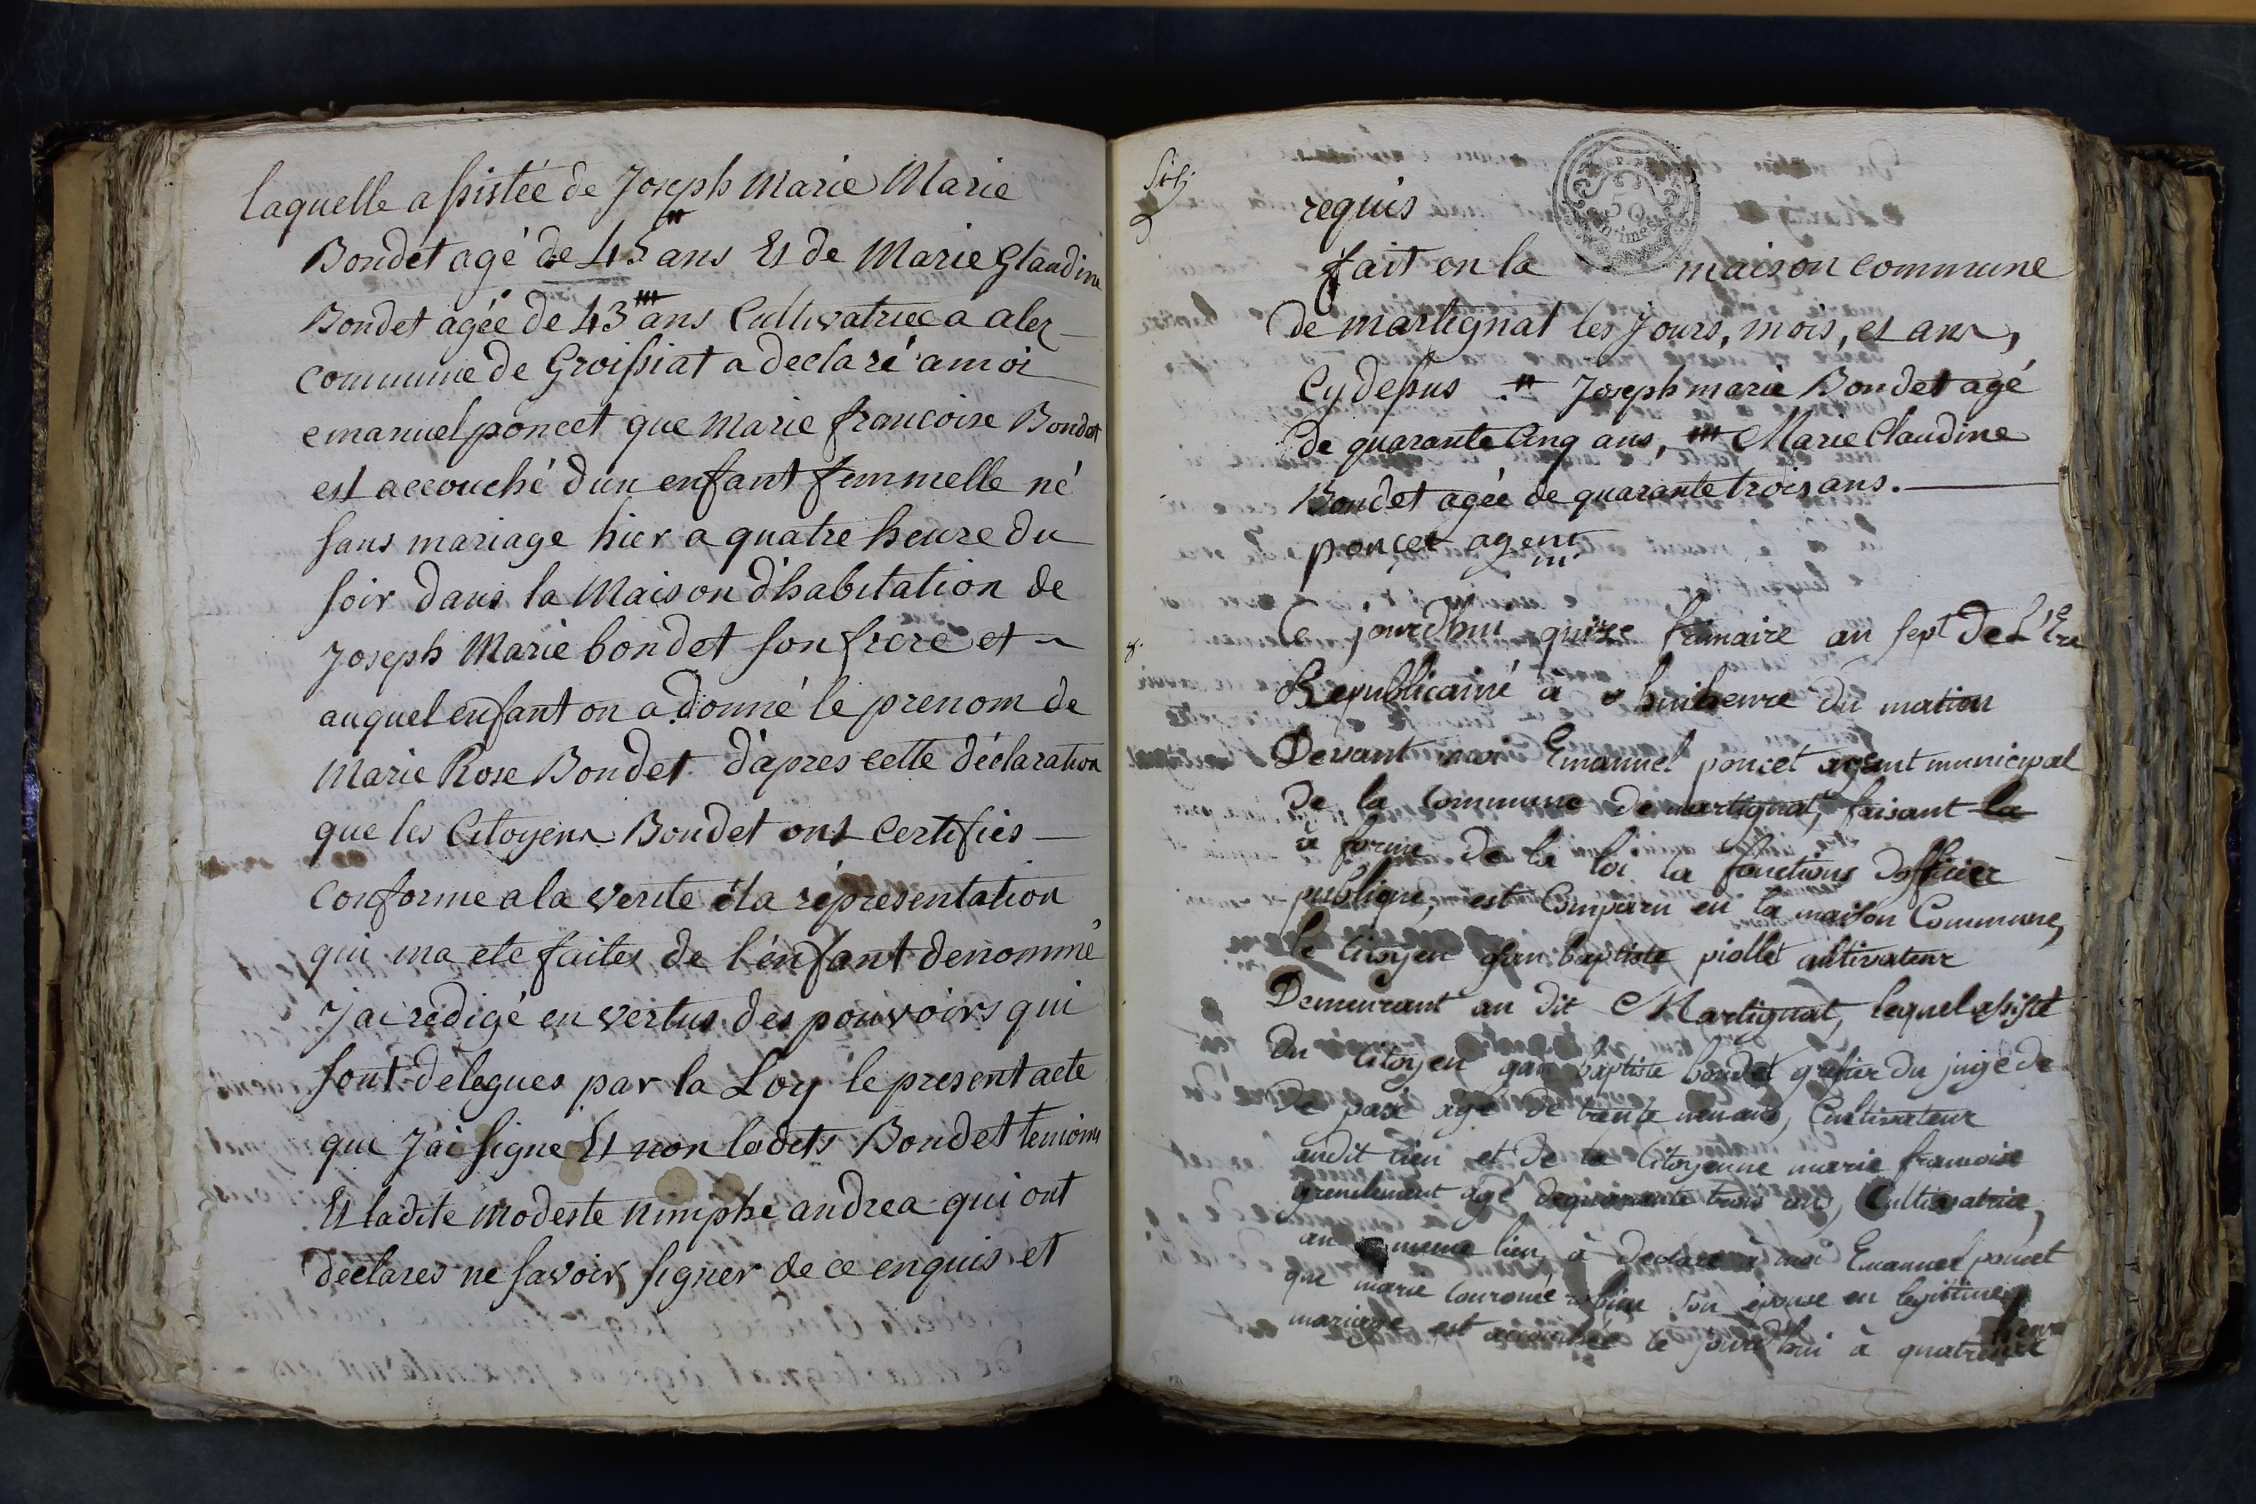 laquelle assistée de Joseph Marie Marie
Bondet agé de 45 ans Et de Marie Glaudine
Bondet agée de 43 ans Cultivatrice a alex
commune de Groissiat a declaré a moi
emanuel poncet que Marie francoise Bondet
est accouché dun enfant femmelle né
sans mariage hier a quatre heure du
soir dans la Maison d'habitation de
Joseph Marie bondet son frere et
auquel enfant on a donné le prenom de
Marie Rose Bondet d'apres cette déclaration
que les Citoyens Bondet ont certifiés
conforme a la verite et la réprésentation
qui ma ete faites de l'énfant denommé
J'ai rédigé en vertus des pouvoirs qui
sont délegues par la Loy le present acte
que J'ai signe Et non lesdits Bondet temoins
Et ladite modeste nimphe andrea qui ont
déclares ne savoir signer de ce enquis et
requis
50
fait en la maison commune
de martignat les Jours, mois, et ans,
Cy dessus Joseph marie Bondet agé
de quarante Cinq ans, Marie Claudine
Bondet agée de quarante trois ans.
poncet agent
8.
Ce jourdhui quize frimaire an sept De L'Ere
Republicainé à huitheure du matien
Devant moi Emanuel poncet agent municipal
De la Commune de martignat, faisant la
à forme De la loi la fonctions Dofficier
publique, est Comparu en la maison Commune,
le Citoyen gan baptiste piollet cultivateur
Demeurant au dit Martignat, lequel assisté
Du Citoyen gan baptiste bondet grefier du juge de
De paix agé de trente neuf ans, Cultivateur
audit lieu et De la Citoyenne marie francoise
grenilement agé dequarante trois ans, Cultivatrice,
au meme lieu, à Declare à moi Emanuel poncet
que marie Couronné robin son épouse en legitime
mariage est accouchée ce jourdhui à quatre heure